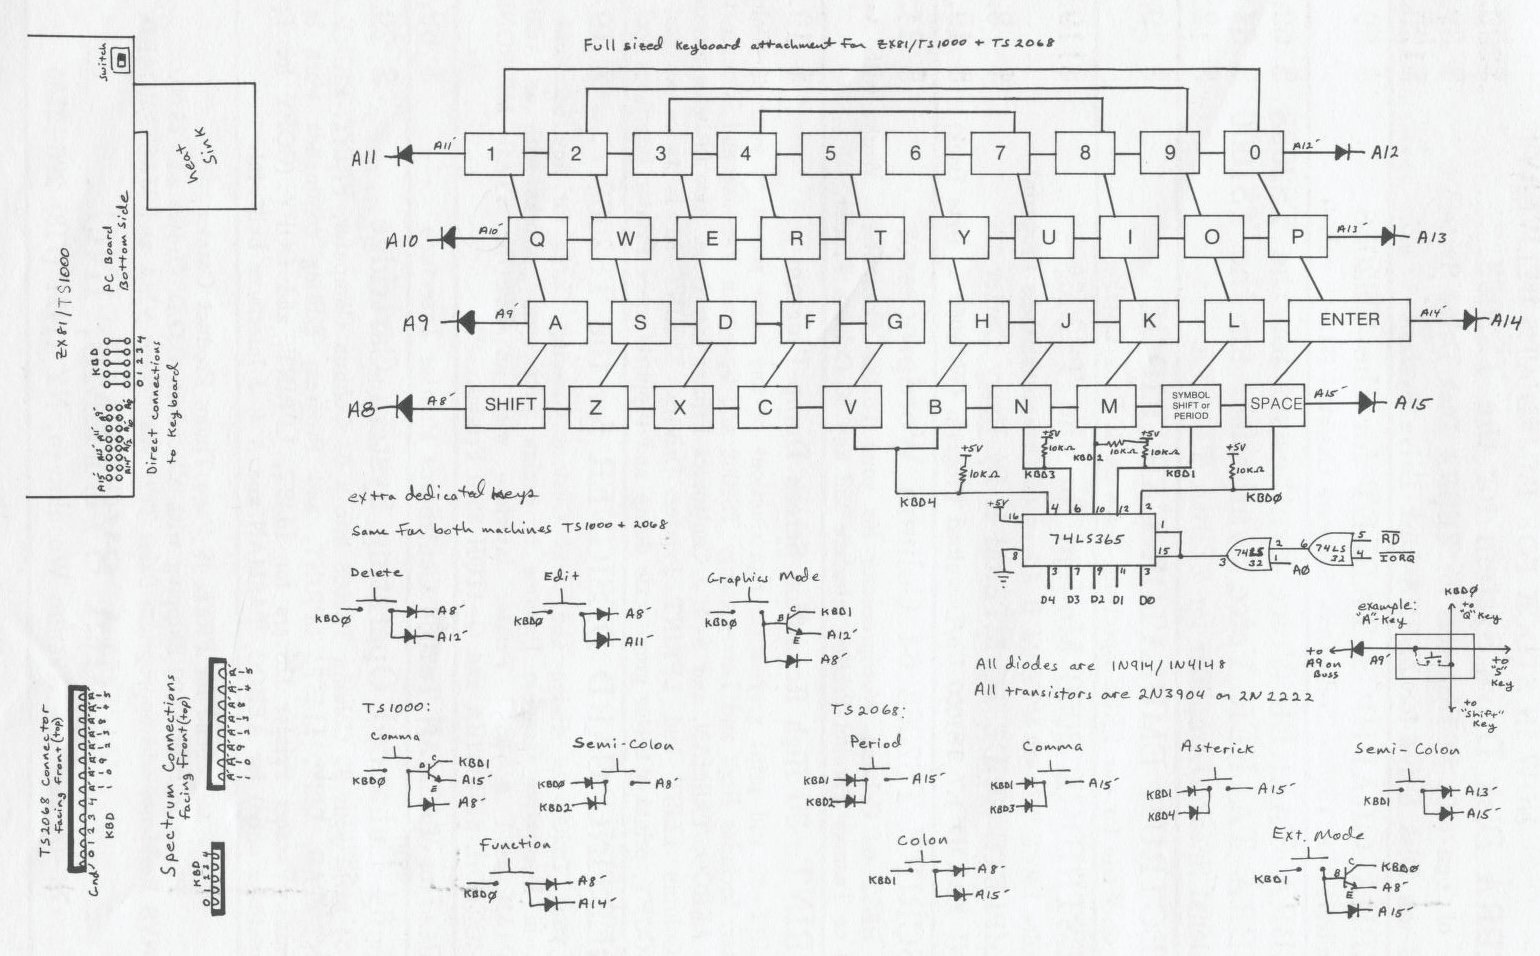 Full sized keyboard attachment for ZX81/TS1000 + TS2068
switch
Heat Sink
PC Board
Bottom side
ZX81/TS1000
KBD
0 1 2 3 4
Direct connections
to keyboard
A11 A11´ 1 2 3 4 5 6 7 8 9 0 A12´ A12
A10 A10´ Q W E R T Y U I O P A13´ A13
A9 A9´ A S D F G H J K L ENTER A14´ A14
A8 A8´ SHIFT Z X C V B N M SYMBOL SHIFT or PERIOD SPACE A15´ A15
+5V 10KΩ +5V 10KΩ +5V 10KΩ 10KΩ +5V 10KΩ
KBD4 KBD3 KBD2 KBD1 KBDØ
+5V 16 4 6 10 12 2 1
74LS365
8 15
3 7 9 11 3
D4 D3 D2 D1 D0
3 74LS32 2 1 A0 6 74LS32 5 RD
4 IORQ
extra dedicated keys
Same for both machines TS1000 + 2068
Delete
KBDØ A8´
A12´
Edit
KBDØ A8´
A11´
Graphics Mode
KBDØ B C E KBD1
A12´
A8´
All diodes are 1N914/1N4148
All transistors are 2N3904 or 2N2222
example:
"A"-Key
KBDØ
to
"Q" Key
to
A9 on
Buss
A9´
to
"S"
Key
to
"Shift"
Key
TS1000:
Comma
KBDØ C E KBD1
A15´
A8´
Semi-Colon
KBDØ A8´
KBD2
Function
KBDØ A8´
A14´
TS2068:
Period
KBD1 A15´
KBD2
Comma
KBD1 A15´
KBD3
Asterick
KBD1 A15´
KBD4
Semi-Colon
KBD1 A13´
A15´
Colon
KBD1 A8´
A15´
Ext. Mode
KBD1 B C E KBDØ
A8´
A15´
TS2068 Connector
facing front (top)
Gnd 0 1 2 3 4
KBD
Spectrum Connections
facing front (top)
KBD
0 1 2 3 4